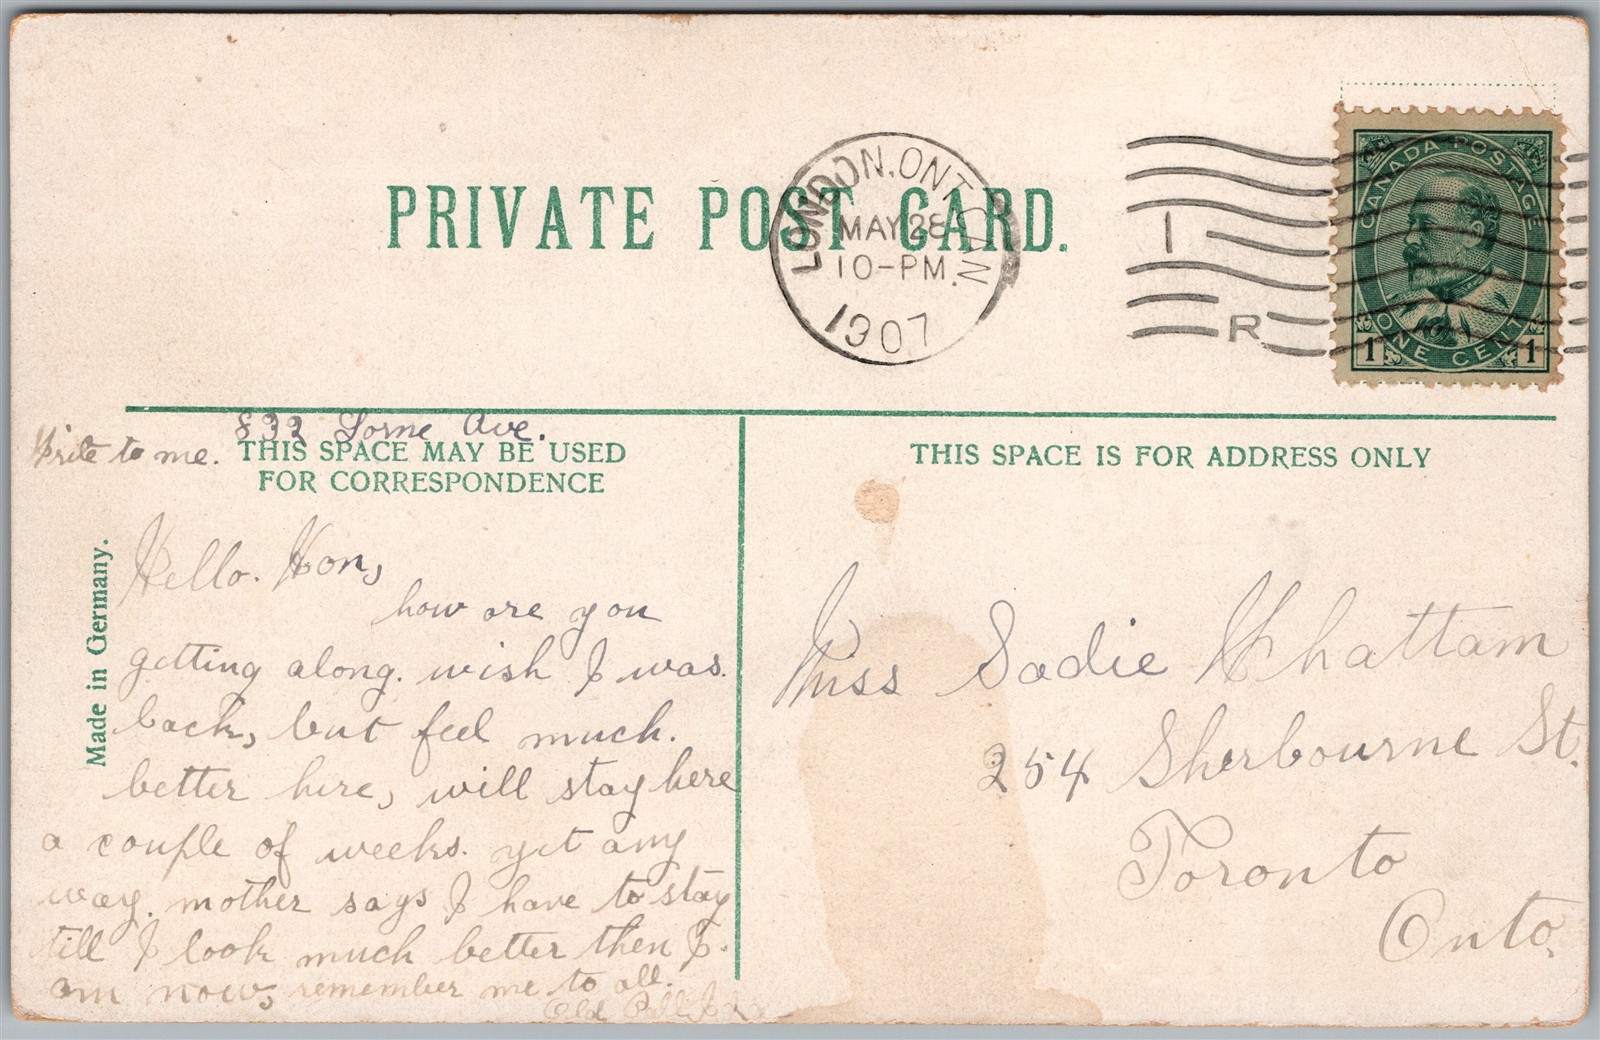 CANADA POSTAGE
ONE CENT
1 1
LONDON, ONT. CAN.
MAY 28
10-PM
1907
I
R
PRIVATE POST CARD.
832 Lorne Ave.
Write to me.
THIS SPACE MAY BE USED
FOR CORRESPONDENCE
THIS SPACE IS FOR ADDRESS ONLY
Made in Germany.
Hello. Hon,
how are you
getting along. wish I was.
back, but feel much.
better here, will stay here
a couple of weeks. yet any
way. mother says I have to stay
till I look much better then I.
am now, remember me to all.
Old
Miss Sadie Chattam
254 Sherbourne St.
Toronto
Onto.